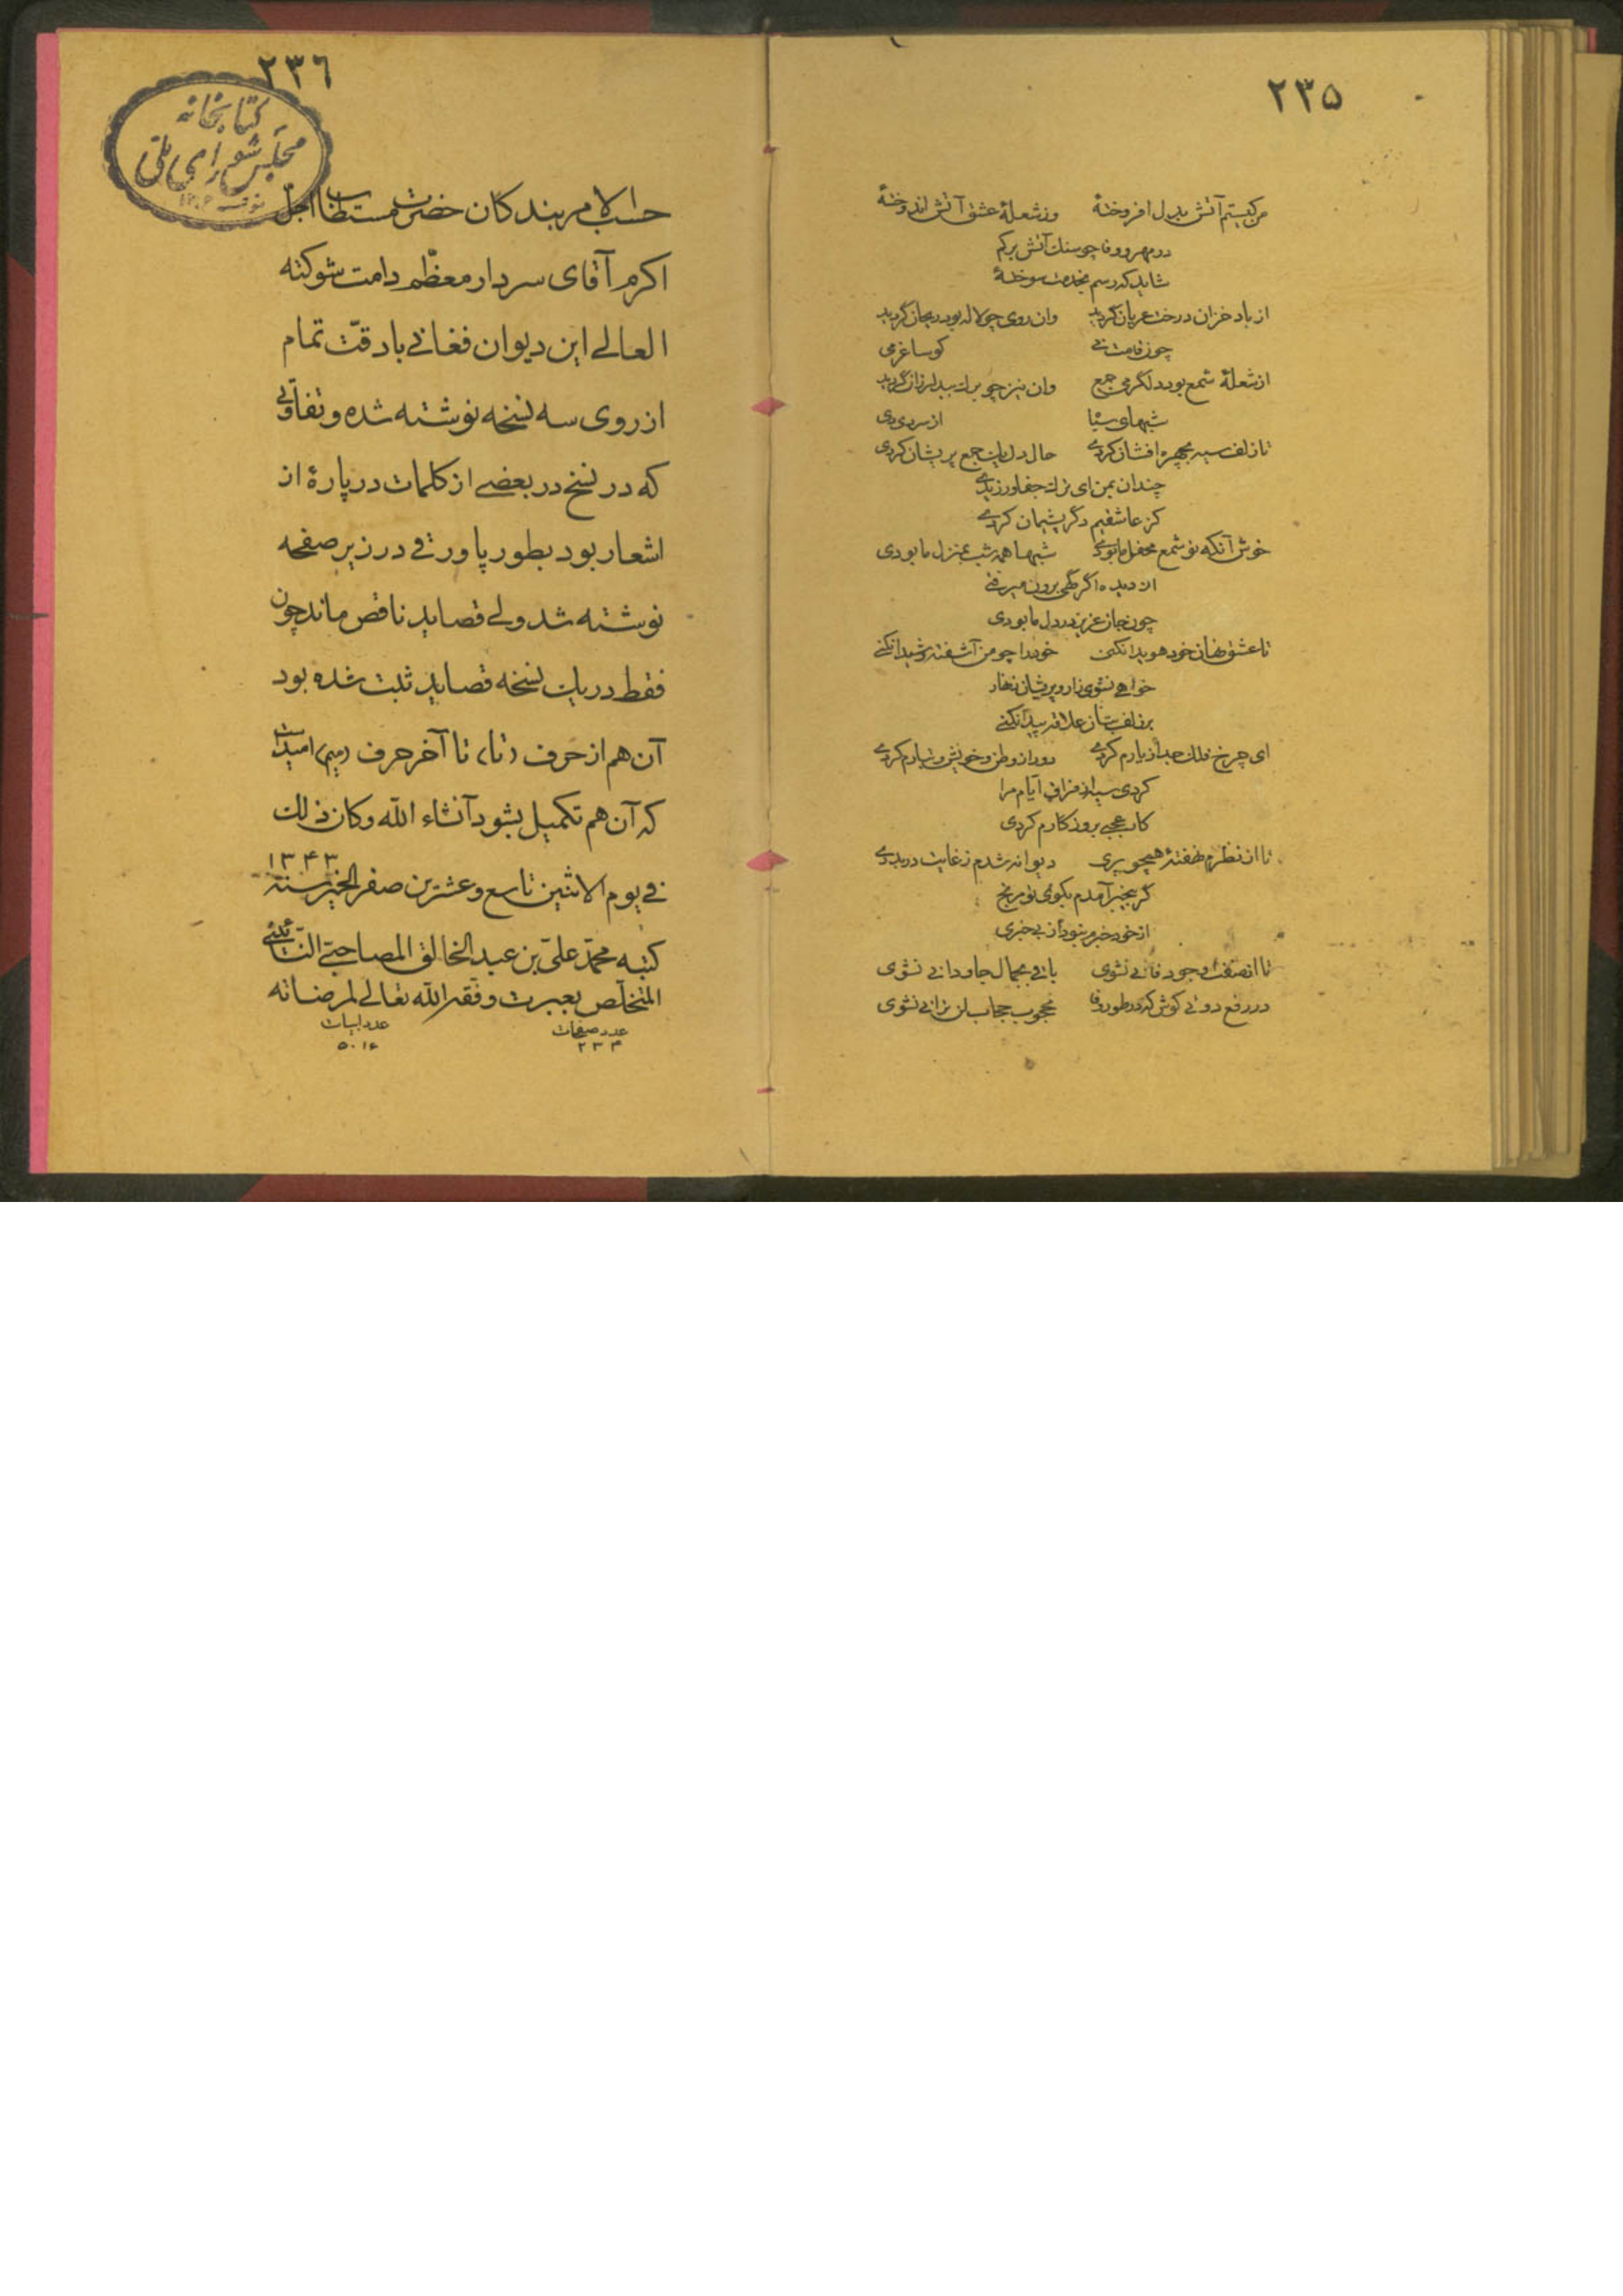 ۲۳۵
من کیستم آتش بدل افروختهٔ وز شعلهٔ عشق آتش اندوختهٔ
در مهر و وفا چو سنك آتش بر کم
شاید که رسم بخدمت سوختهٔ
از باد خزان درخت عریان گردید وان روی چو لاله بود ریحان گردید
چون قامت نی کو ساغر می
از شعلهٔ شمع بود دلگرمی جمع وان نیز چو برك بید لرزان گردید
شبهای شتا از سردی دی
تا زلف سیه بچهره افشان کردی حال دل یك جمع پریشان کردی
چندان بمن ای ترك جفا ورزیدی
کز عاشقیم دگر پشیمان کردی
خوش آنکه تو شمع محفل ما بودی شبها همه شب بمنزل ما بودی
از دیده اگر گهی برون میرفتی
چون جان عزیز در دل ما بودی
تا عشق نهان خود هویدا نکنی خود را چو من آشفته و شیدا نکنی
خواهی نشوی زار و پریشان زنهار
بر زلف بتان علاقه پیدا نکنی
ای چرخ فلك جدا ز یارم کردی دور از وطن و خویش و تبارم کردی
کردی سیه از فراق ایام مرا
کار عجبی بروزگارم کردی
تا از نظرم نهفتهٔ همچو پری دیوانه شدم ز غایت دربدری
گر بیخبر آمدم بکوی تو مرنج
از خود خبرم نبود از بیخبری
تا از صفت وجود فانی نشوی باقی بجمال جاودانی نشوی
در رفع دوئی کوش که در طور وفا محجوب حجاب لن ترانی نشوی
۲۳٦
کتابخانه
مجلس شورای ملی
حسب الامر بندکان حضرت مستطاب اجل
اکرم آقای سردار معظّم دامت شوکته
العالی این دیوان فغانی با دقّت تمام
از روی سه نسخه نوشته شده و تفاوتی
که در نسخ در بعضی از کلمات در پارهٔ از
اشعار بود بطور پاورقی در زیر صفحه
نوشته شد ولی قصاید ناقص ماند چون
فقط در یك نسخه قصاید ثبت شده بود
آن هم از حرف (تا) تا آخر حرف (میم) امید است
که آن هم تکمیل بشود آنشاء اللّه وکان ذلك
فی یوم الاثنین تاسع وعشرین صفر الخیر سنة ۱۳۴۳
کتبه محمّد علیّ بن عبد الخالق المصاحبیّ النّائینی
المتخلّص بعبرت وفّقه اللّه تعالی لمرضاته
عدد صفحات عدد ابیات
۲۳۴ ۵۰۱۶